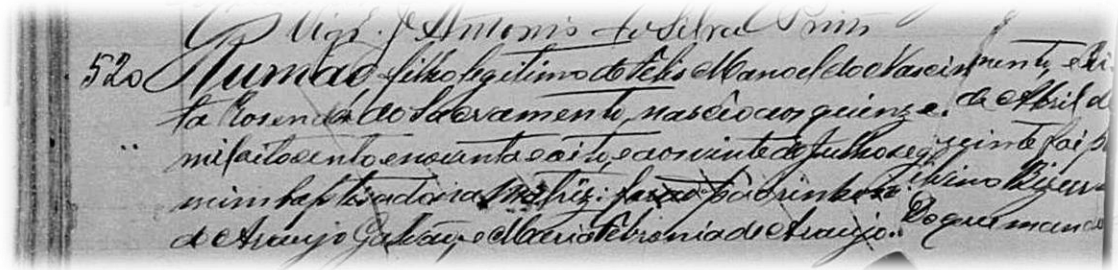 Vigr.º Antonio da Silva
520 Rumão filho legitimo de Felis Manoel do Nascimento, e Ri-
ta Rosenda do Sacramento, nasceo aos quinze de Abril d
mil oito cento e noventa e oito, e aos vinte de Julho seguinte foi p
mim baptisado na Matriz: forão padrinhos Silvino Bizerra
de Araujo Galvão, e Maria Febronia de Araujo. Do que mand